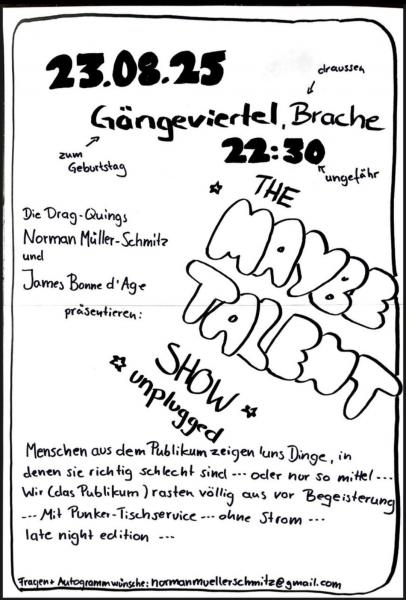 23.08.25
draussen
Gängeviertel, Brache
zum
Geburtstag
22:30
ungefähr
Die Drag-Quings
Norman Müller-Schmitz
und
James Bonne d'Age
präsentieren:
THE
MAYBE
TALENT
SHOW
unplugged
Menschen aus dem Publikum zeigen uns Dinge, in
denen sie richtig schlecht sind --- oder nur so mittel ---
Wir (das Publikum) rasten völlig aus vor Begeisterung
--- Mit Punker-Tischservice --- ohne Strom ---
late night edition ---
Fragen + Autogrammwünsche: normanmuellerschmitz@gmail.com